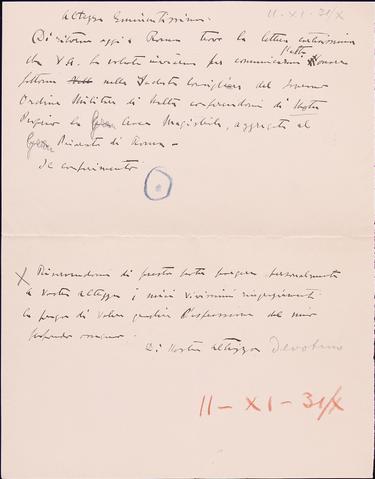 Altezza Eminentissima. 11-XI-31/X
Di ritorno oggi a Roma trovo la lettera
che V.A. ha voluto inviarmi per comunicarmi
nella del Sovrano
Ordine Militare di Malta conferendomi di Motu
Proprio la Croce Magistrale, aggregata al
Priorato di Roma -
Il conferimento
X Riservandomi di personalmente
a Vostra Altezza i miei vivissimi ringraziamenti
la prego di voler gradire l'espressione del mio
profondo ossequio.
Di Vostra Altezza Devotissimo
11-XI-31/X